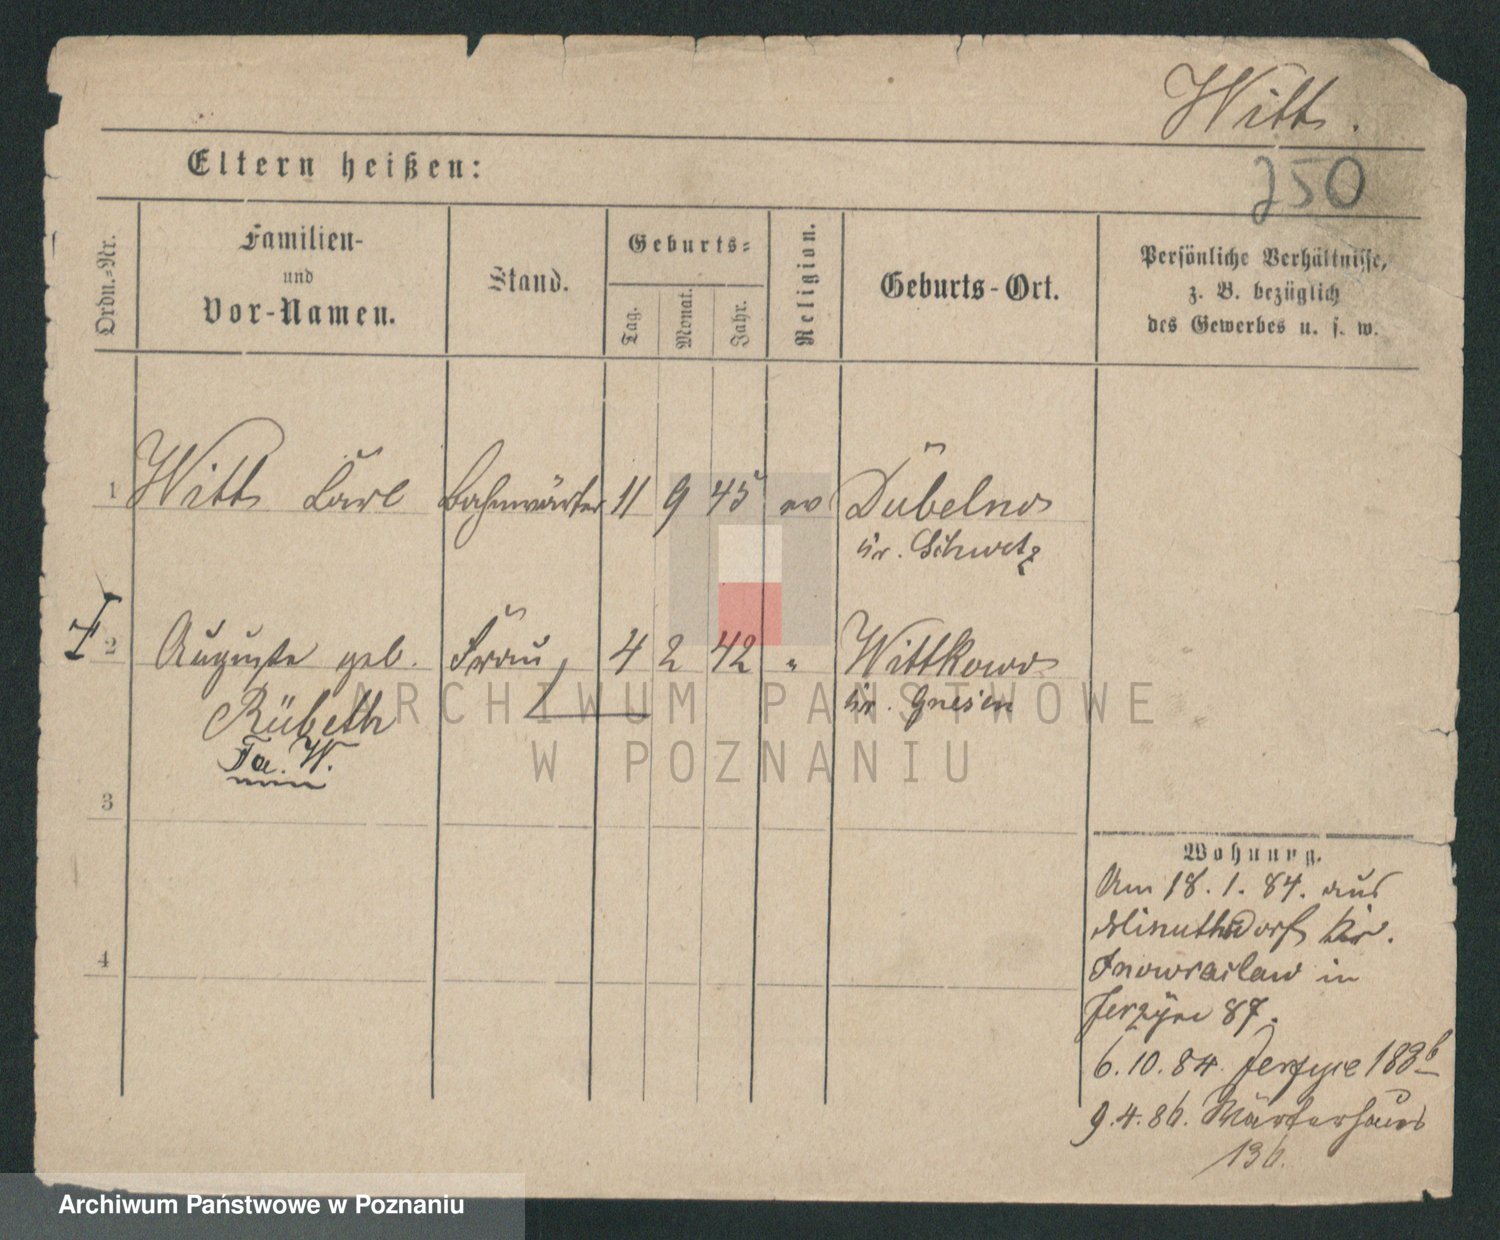 Witt.
250
Eltern heißen:
Ordn.=Nr.
Familien-
und
Vor-Namen.
Stand.
Geburts=
Tag.
Monat.
Jahr.
Religion.
Geburts-Ort.
Persönliche Verhältnisse,
z. B. bezüglich
des Gewerbes u. s. w.
1 Witt Carl Bahnwärter 11 9 45 ev Dubelno
Kr. Schwetz
2 Auguste geb. Frau 4 2 42 " Wittkowo
Rübeth Kr. Gnesen
Fa. W.
3
4
Wohnung.
Am 18. 1. 84. aus
Kr.
Inowraclaw in
Jerzyce 87.
6. 10. 84. Jerzyce 183b
9. 4. 86. Wärterhaus
136.
ARCHIWUM PAŃSTWOWE
W POZNANIU
Archiwum Państwowe w Poznaniu